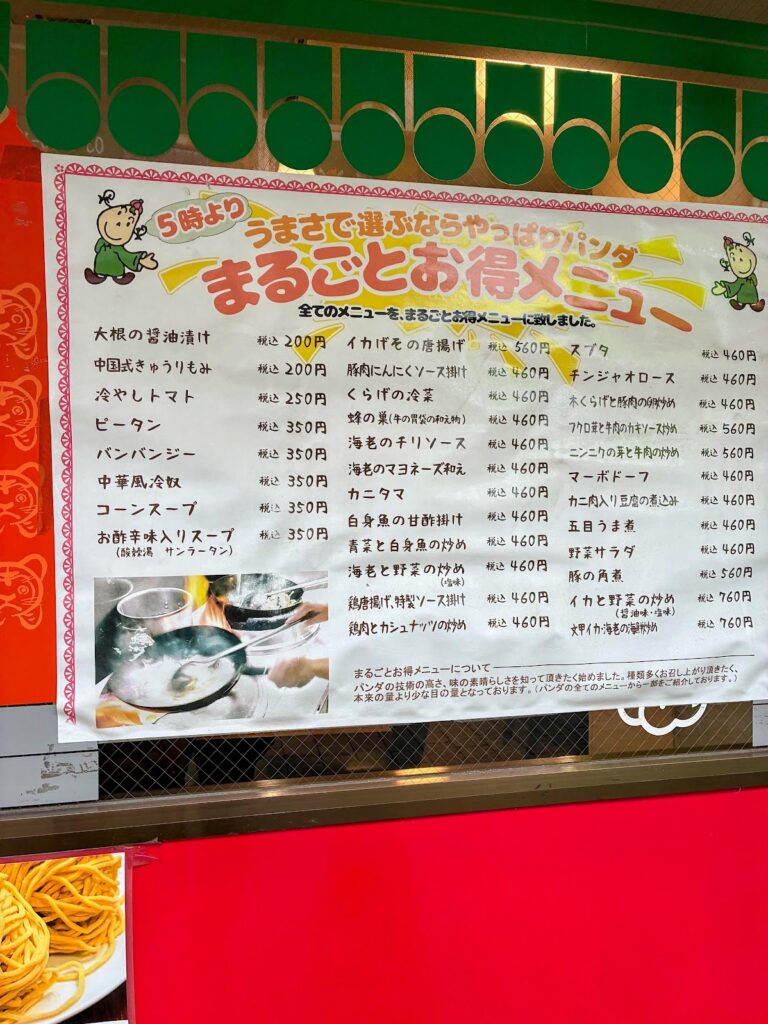 5時より
うまさで選ぶならやっぱりパンダ
まるごとお得メニュー
全てのメニューを、まるごとお得メニューに致しました。
大根の醤油漬け 税込 200円
中国式きゅうりもみ 税込 200円
冷やしトマト 税込 250円
ピータン 税込 350円
バンバンジー 税込 350円
中華風冷奴 税込 350円
コーンスープ 税込 350円
お酢辛味入りスープ 税込 350円
(酸辣湯 サンラータン)
イカげその唐揚げ 税込 560円
豚肉にんにくソース掛け 税込 460円
くらげの冷菜 税込 460円
蜂の巣(牛の胃袋の和え物) 税込 460円
海老のチリソース 税込 460円
海老のマヨネーズ和え 税込 460円
カニタマ 税込 460円
白身魚の甘酢掛け 税込 460円
青菜と白身魚の炒め 税込 460円
海老と野菜の炒め 税込 460円
(塩味)
鶏唐揚げ、特製ソース掛け 税込 460円
鶏肉とカシュナッツの炒め 税込 460円
スブタ 税込 460円
チンジャオロース 税込 460円
木くらげと豚肉の卵炒め 税込 460円
フクロ茸と牛肉のカキソース炒め 税込 560円
ニンニクの芽と牛肉の炒め 税込 560円
マーボドーフ 税込 460円
カニ肉入り豆腐の煮込み 税込 460円
五目うま煮 税込 460円
野菜サラダ 税込 460円
豚の角煮 税込 560円
イカと野菜の炒め 税込 760円
(醤油味・塩味)
文甲イカ・海老の海鮮炒め 税込 760円
まるごとお得メニューについて
パンダの技術の高さ、味の素晴らしさを知って頂きたく始めました。種類多くお召し上がり頂きたく、
本来の量より少な目の量となっております。(パンダの全てのメニューから一部をご紹介しております。)